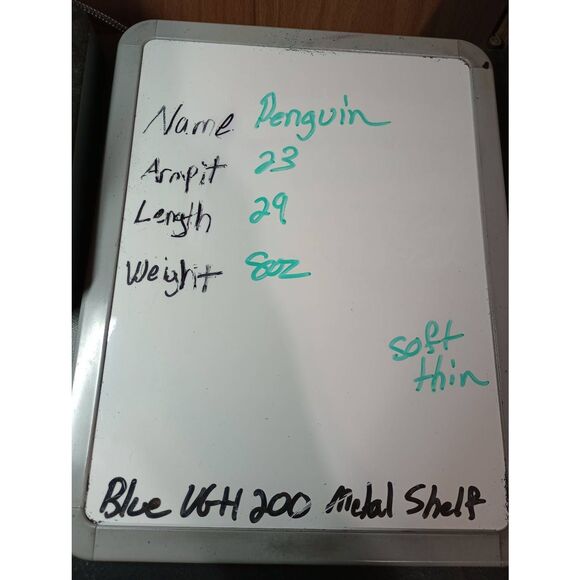 Name Penguin
Armpit 23
Length 29
Weight 8oz
soft
thin
Blue VGH 200 Metal Shelf